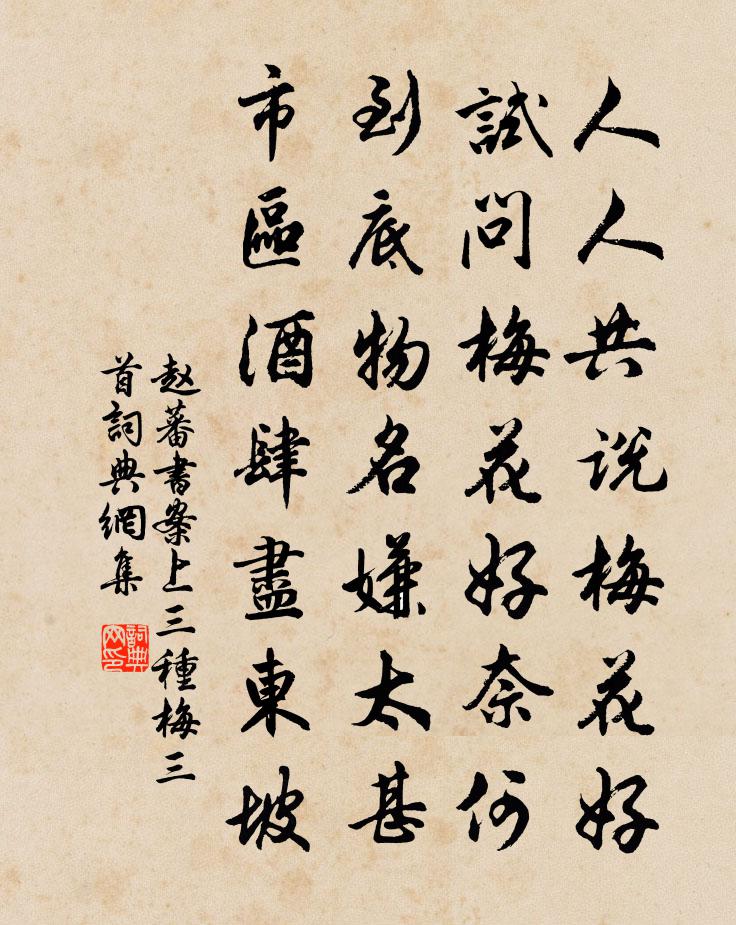 人人共说梅花好
試問梅花好奈何
到底物名嫌太甚
市區酒肆盡東坡
赵蕃書案上三種梅三
首詞典網集
詞典
网印